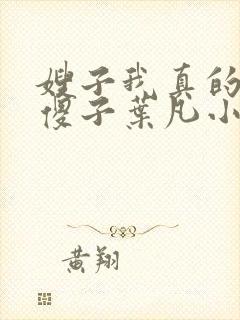 嫂子我真的
傻子葉凡小
黄翔